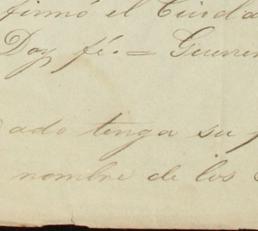 firmó el Ciuda
Doy fé. = 
ado tenga su
nombre de los